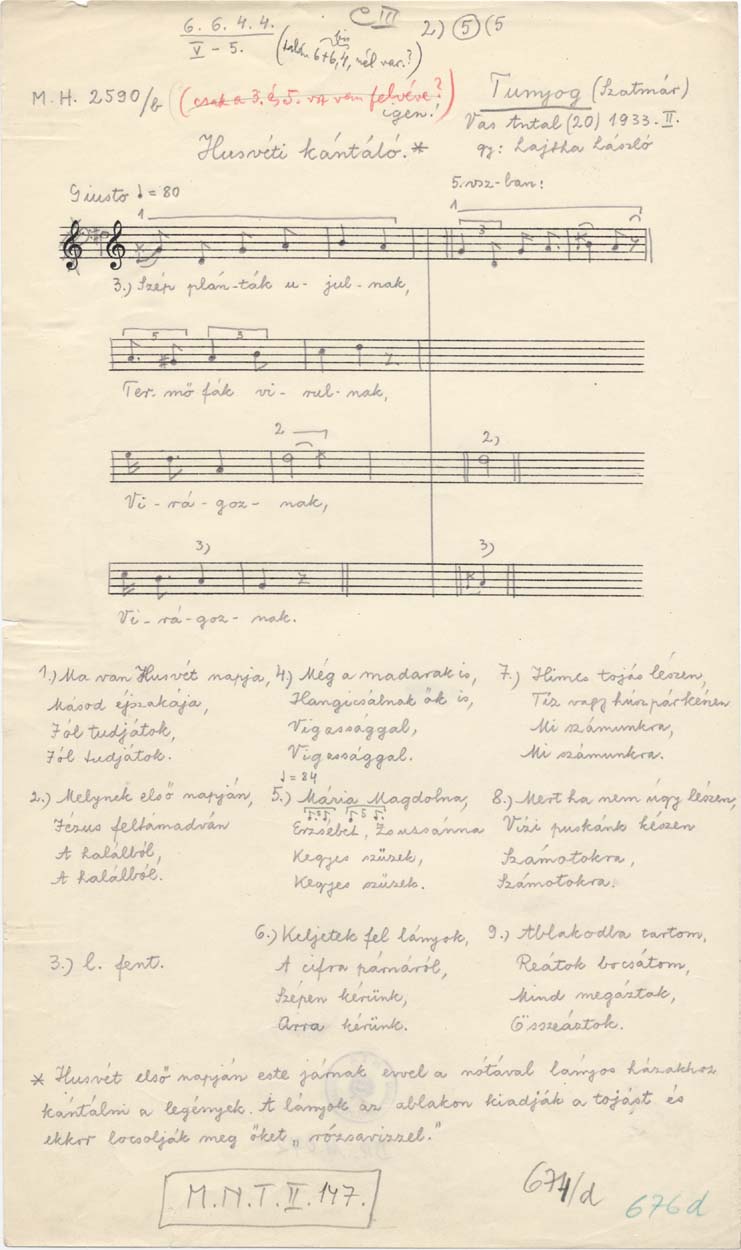 C III
6. 6. 4. 4.
V – 5.
2) (5) (5
(talán 6+6, 4, nél var.?)
M. H. 2590/b
(csak a 3. és 5. vsz van felvéve?)
igen!
Tunyog (Szatmár)
Vas Antal (20) 1933. II.
gy: Lajtha László
Husvéti kántáló.*
Giusto ♩ = 80
5. vsz-ban:
1
1
3
3.) Szép plán-ták u- jul- nak,
5
3
Ter- mő fák vi- rul- nak,
2
2)
Vi- rá- goz- nak,
3)
3)
Vi- rá- goz- nak.
1.) Ma van Husvét napja,
Másod éjszakája,
Jól tudjátok,
Jól tudjátok.
2.) Melynek első napján,
Jézus feltámadván
A halálból,
A halálból.
3.) l. fent.
4.) Még a madarak is,
Hangicsálnak ők is,
Vigassággal,
Vigassággal.
♩ = 84
5.) Mária Magdolna,
Erzsébet, Zsussánna
Kegyes szüzek,
Kegyes szüzek.
6.) Keljetek fel lányok,
A cifra párnáról,
Szépen kérünk,
Arra kérünk.
7.) Himes tojás lészen,
Tiz vagy húsz párkénen
Mi számunkra,
Mi számunkra.
8.) Mert ha nem úgy lészen,
Vizi puskánk készen
Számotokra,
Számotokra.
9.) Ablakodba tartom,
Reátok bocsátom,
Mind megáztak,
Összeáztok.
* Husvét első napján este járnak evvel a nótával lányos házakhoz
kántálni a legények. A lányok az ablakon kiadják a tojást és
ekkor locsolják meg őket „rózsavizzel."
M.N.T. II. 147.
674/d
676 d